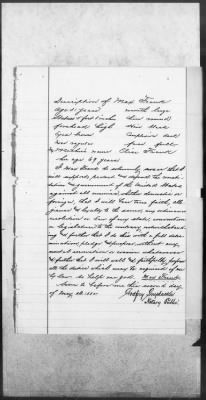 Description of Max Frank
Age years mouth large
Stature 5 feet inches chin round
forehead high Hair black
Eyes brown Complexion dark
nose regular face full
wife's name Frank
her age 69 years
I Max Frank do solemnly swear that I
will support, protect and defend the Consti-
tution & government of the United States
against all enemies, whether domestic or
foreign; that I will bear true faith, alle-
giance & loyalty to the same, any ordinance
resolution or law of any state, convention
or legislature to the contrary notwithstanding
& further that I do this with a full deter-
mination, pledge & purpose, without any
mental reservation or evasion whatsoever
& further that I will well & faithfully perform
all the duties which may be required of me
by law. So help me god. Max Frank
Sworn to before me this second day
of May
Notary Public